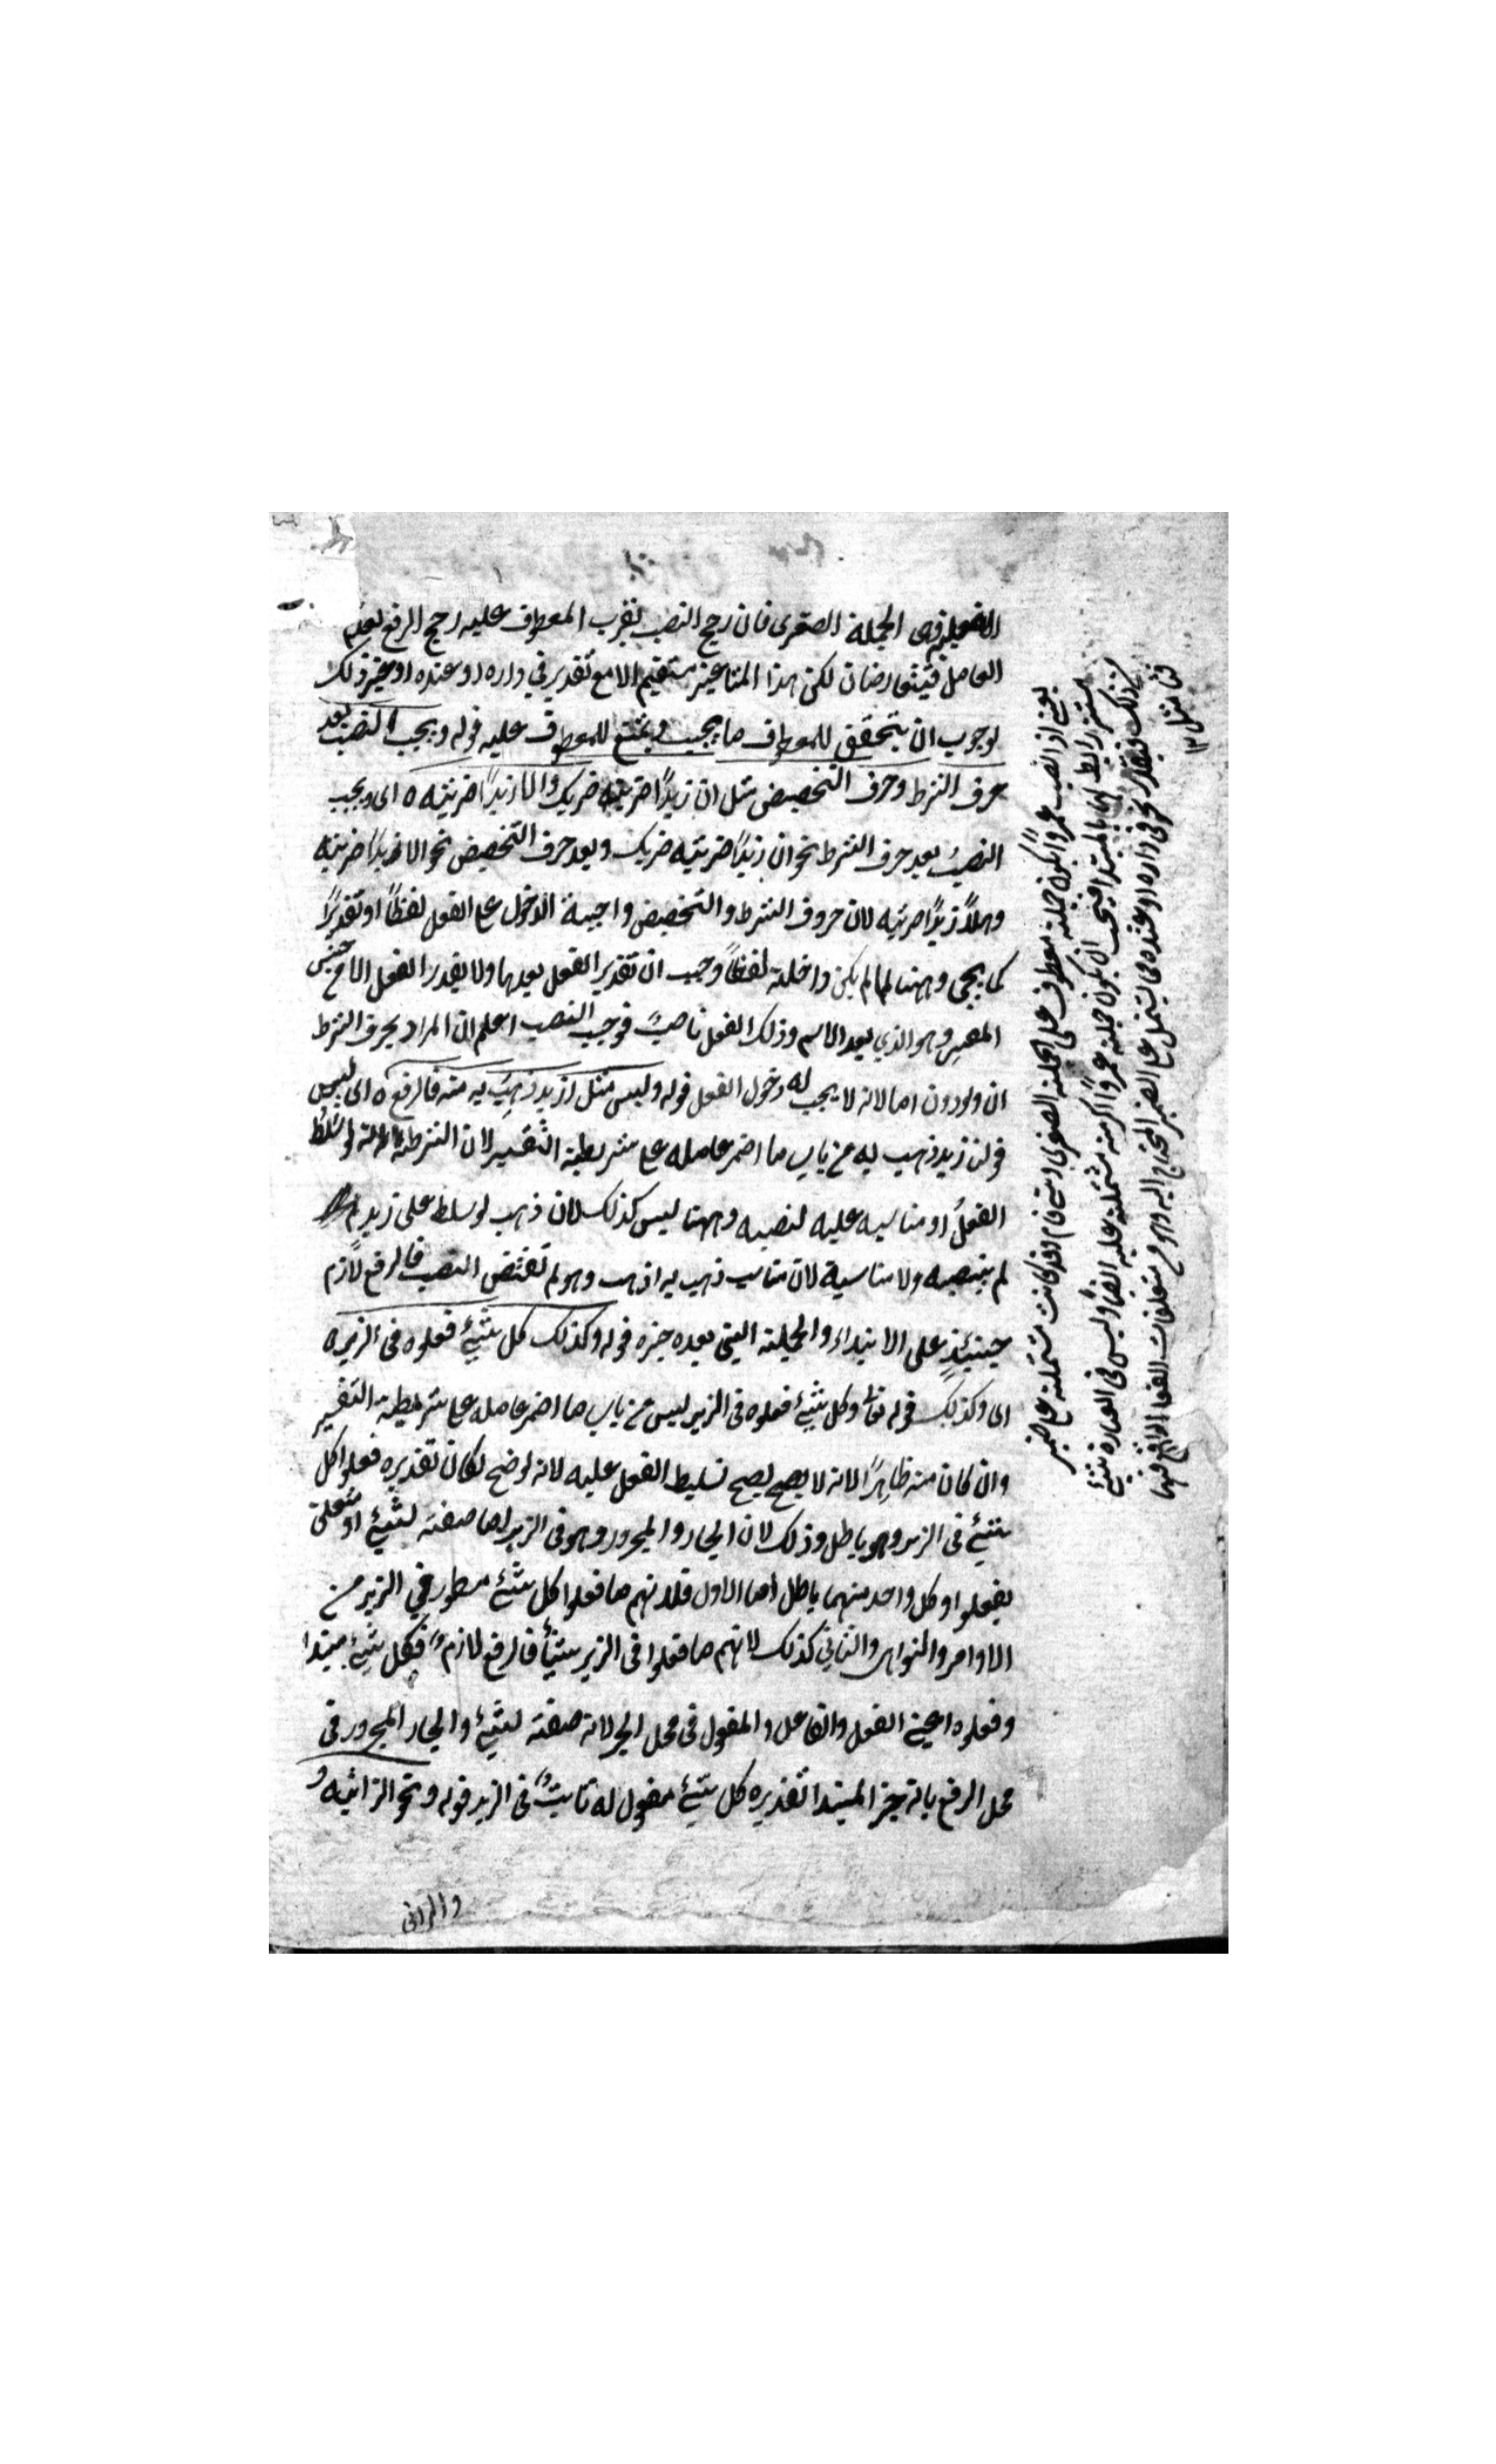 الفعلية وهى الجملة الصغرى فان رجح النصب بقرب المعطوف عليه رجح الرفع بعدم
العامل فيتعارضان لكن هذا المثا غير مستقيم الا مع تقدير في داره او عنده او غير ذلك
لوجوب ان يتحقق للمعطوف ما يجب ويمتنع للمعطوف عليه قوله ويجب النصب بعد
حرف الشرط وحرف التخصيص مثل ان زيدًا ضربته ضربك والا زيدًا ضربته ه اى ويجب
النصبُ بعد حرف الشرط نحو ان زيدًا ضربته ضربك وبعد حرف التخصيص نحو الا زيدًا ضربته
وهلاً زيدًا ضربته لان حروف الشرط والتخصيص واجبة الدخول على الفعل لفظًا او تقديرًا
كما يجئ وههنا لما لم يكن داخلة لفظًا وجب ان تقدير الفعل بعدها ولا يقدر الفعل الا مع جنس
المفسر وهو الذي بعد الاسم وذلك الفعل ناصبً فوجب النصب اعلم ان المراد بحرف الشرط
ان ولو دون اما لانه لا يجب له دخول الفعل قوله وليس مثل ازيد ذهب به منه فالرفع ه اى ليس
قولنا زيد ذهب به من باب ما اضمر عامله على شريطة التفسير لان الشرطة لو سُلط
الفعلُ او مناسبه عليه لنصبه وههنا ليس كذلك لان ذهب لو سلط على زيد
لم ينصبه ولا مناسبة لان مناسب ذهب به اذهب وهو لم تقتض النصب فالرفع لازم
حينئذٍ على الابتداء والجملة التى بعده خبره قوله وكذلك كل شيئ فعلوه فى الزبر ه
اى وكذلك قوله تعا وكل شيئ فعلوه فى الزبر ليس من باب ما اضمر عامله على شريطة التفسير
وان كان منه ظاهرًا لانه لا يصح يصح تسليط الفعل عليه لانه لو صح لكان تقديره فعلوا كل
شيئ فى الزبر وهو باطل وذلك لان الجار والمجرور وهو فى الزبر اما صفة لشيئ او متعلق
بفعلوا وكل واحد منهما باطل اما الاول فلانهم ما فعلوا كل شيئ مسطور في الزبر من
الاوامر والنواهى والثاني كذلك لانهم ما فعلوا فى الزبر شيئًا فالرفع لازم فكل شيئ مبتدا
وفعلوه اعنى الفعل والفاعل والمفعول فى محل الجر لانه صفة لشيئ والجار المجرور فى
محل الرفع بانه خبر المبتدا تقديره كل شيئ مفعول له ثابتٌ فى الزبر قوله ونحو الزانية و
والزانى
يعنى اذا نصب عمروًا يكون جملة معطوف على الجملة الصغرى وهى قام وقد كانت مشتملة على ضمير
مستتر رابط لها بالمبتدا فيجب ان يكون جملة عمروًا اكرمته مشتملة عليه ايضًا وليس فى العبارة شيئ
كذلك فيقدر نحو فى داره او عنده مما يشتمل على الضمير المحتاج اليه وهو من متعلقات الفعل الواقع فيها
فتأمثل ١٢